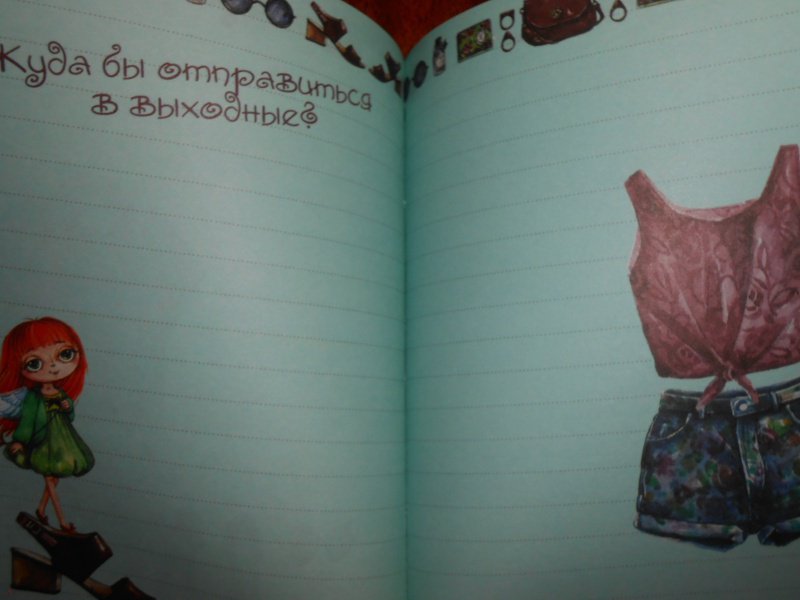 Куда бы отправиться
в выходные?